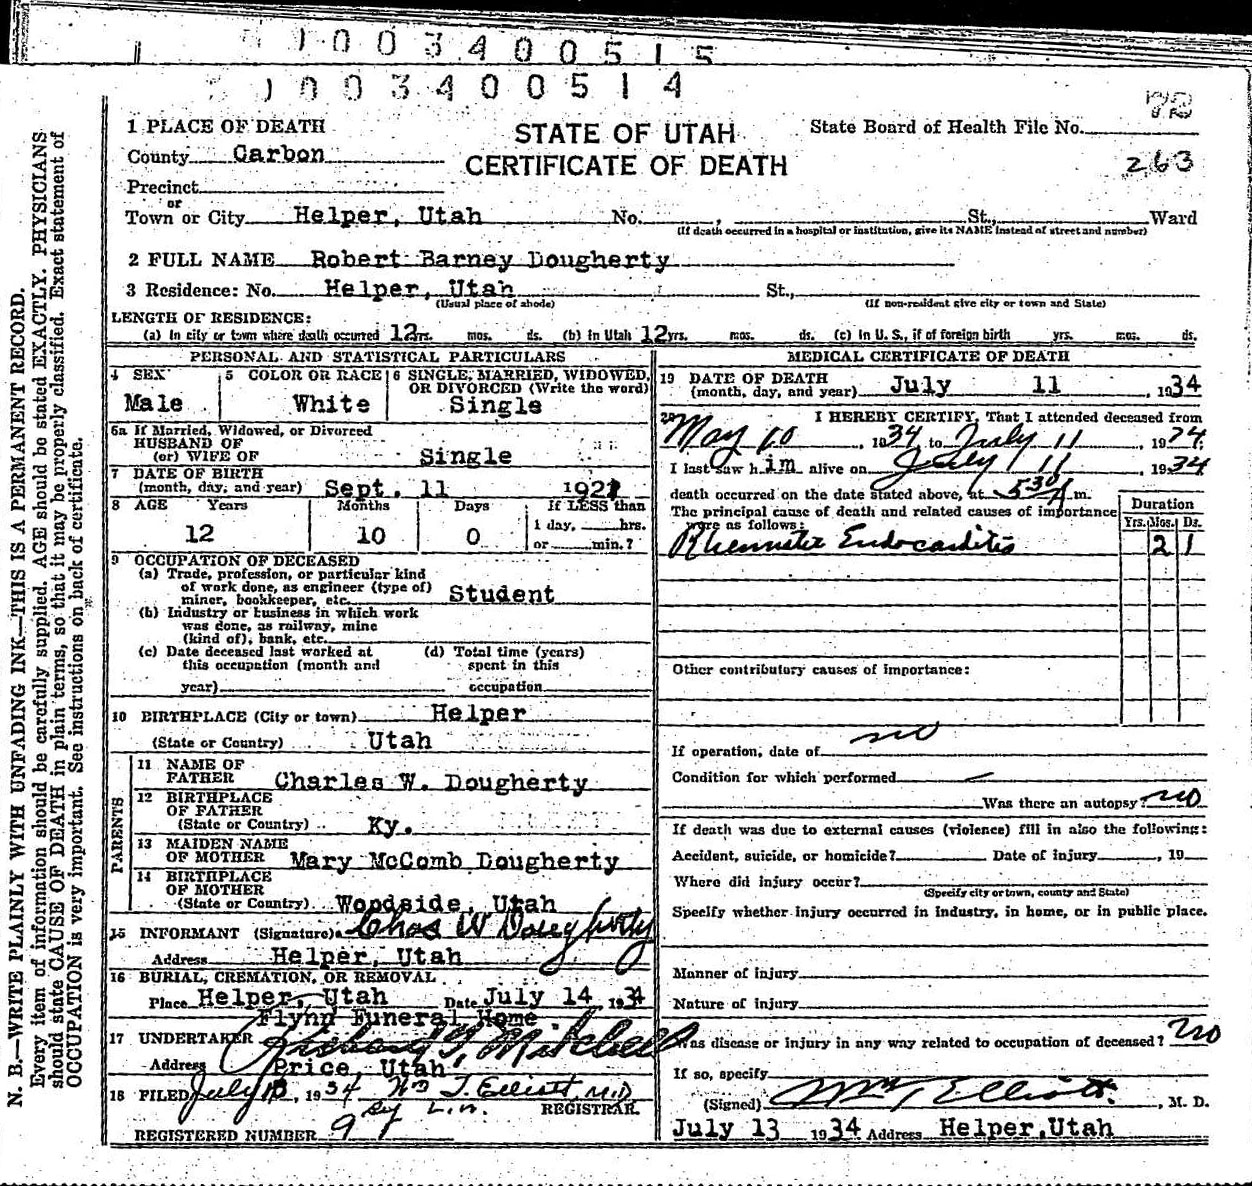 1003400515
1003400514
72
1 PLACE OF DEATH
STATE OF UTAH
State Board of Health File No.
County Carbon
CERTIFICATE OF DEATH
263
Precinct
or
Town or City Helper, Utah No. , St., Ward
(If death occurred in a hospital or institution, give its NAME instead of street and number)
2 FULL NAME Robert Barney Dougherty
3 Residence: No. Helper, Utah St.,
(Usual place of abode) (If non-resident give city or town and State)
LENGTH OF RESIDENCE:
(a) In city or town where death occurred 12 yrs. mos. ds. (b) In Utah 12 yrs. mos. ds. (c) In U. S., if of foreign birth yrs. mos. ds.
PERSONAL AND STATISTICAL PARTICULARS
4 SEX
Male
5 COLOR OR RACE
White
6 SINGLE, MARRIED, WIDOWED, OR DIVORCED (Write the word)
Single
6a If Married, Widowed, or Divorced
HUSBAND OF
(or) WIFE OF Single
7 DATE OF BIRTH
(month, day, and year) Sept. 11 1921
8 AGE Years Months Days If LESS than
12 10 0 1 day, hrs.
or min.?
9 OCCUPATION OF DECEASED
(a) Trade, profession, or particular kind
of work done, as engineer (type of)
miner, bookkeeper, etc. Student
(b) Industry or business in which work
was done, as railway, mine
(kind of), bank, etc.
(c) Date deceased last worked at (d) Total time (years)
this occupation (month and spent in this
year) occupation
10 BIRTHPLACE (City or town) Helper
(State or Country) Utah
PARENTS
11 NAME OF
FATHER Charles W. Dougherty
12 BIRTHPLACE
OF FATHER
(State or Country) Ky.
13 MAIDEN NAME
OF MOTHER Mary McComb Dougherty
14 BIRTHPLACE
OF MOTHER
(State or Country) Woodside, Utah
15 INFORMANT (Signature) Chas W Dougherty
Address Helper, Utah
16 BURIAL, CREMATION, OR REMOVAL
Place Helper, Utah Date July 14, 1934
Flynn Funeral Home
17 UNDERTAKER Richard G. Mitchell
Address Price, Utah
18 FILED July 13, 1934 Wm T. Elliott, M.D.
By L.M. REGISTRAR.
REGISTERED NUMBER
MEDICAL CERTIFICATE OF DEATH
19 DATE OF DEATH
(month, day, and year) July 11, 1934
20 I HEREBY CERTIFY, That I attended deceased from
May 10, 1934 to July 11, 1934
I last saw him alive on July 11, 1934
death occurred on the date stated above, at 5:30 A m.
The principal cause of death and related causes of importance
were as follows:
Duration
Yrs. Mos. Ds.
Rheumatic Endocarditis 2 1
Other contributory causes of importance:
If operation, date of no
Condition for which performed —
Was there an autopsy? no
If death was due to external causes (violence) fill in also the following:
Accident, suicide, or homicide? Date of injury , 19
Where did injury occur?
(Specify city or town, county and State)
Specify whether injury occurred in industry, in home, or in public place.
Manner of injury
Nature of injury
Was disease or injury in any way related to occupation of deceased? no
If so, specify
(Signed) Wm T Elliott, M. D.
July 13 1934 Address Helper, Utah
N. B.—WRITE PLAINLY WITH UNFADING INK—THIS IS A PERMANENT RECORD.
Every item of information should be carefully supplied. AGE should be stated EXACTLY. PHYSICIANS
should state CAUSE OF DEATH in plain terms, so that it may be properly classified. Exact statement of
OCCUPATION is very important. See instructions on back of certificate.